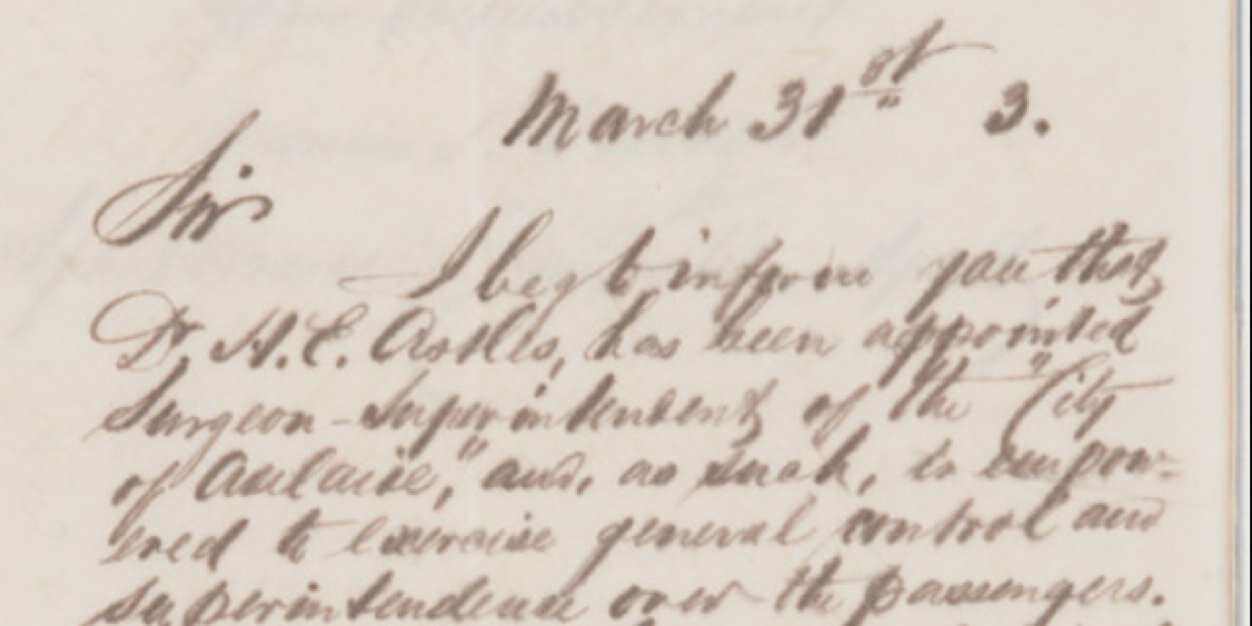 March 31st 3.
Sir
I beg to inform you that
Dr. H. E. Astles, has been appointed
Surgeon-Superintendent of the "City
of Adelaide," and, as such, is empow-
ered to exercise general control and
superintendence over the passengers.